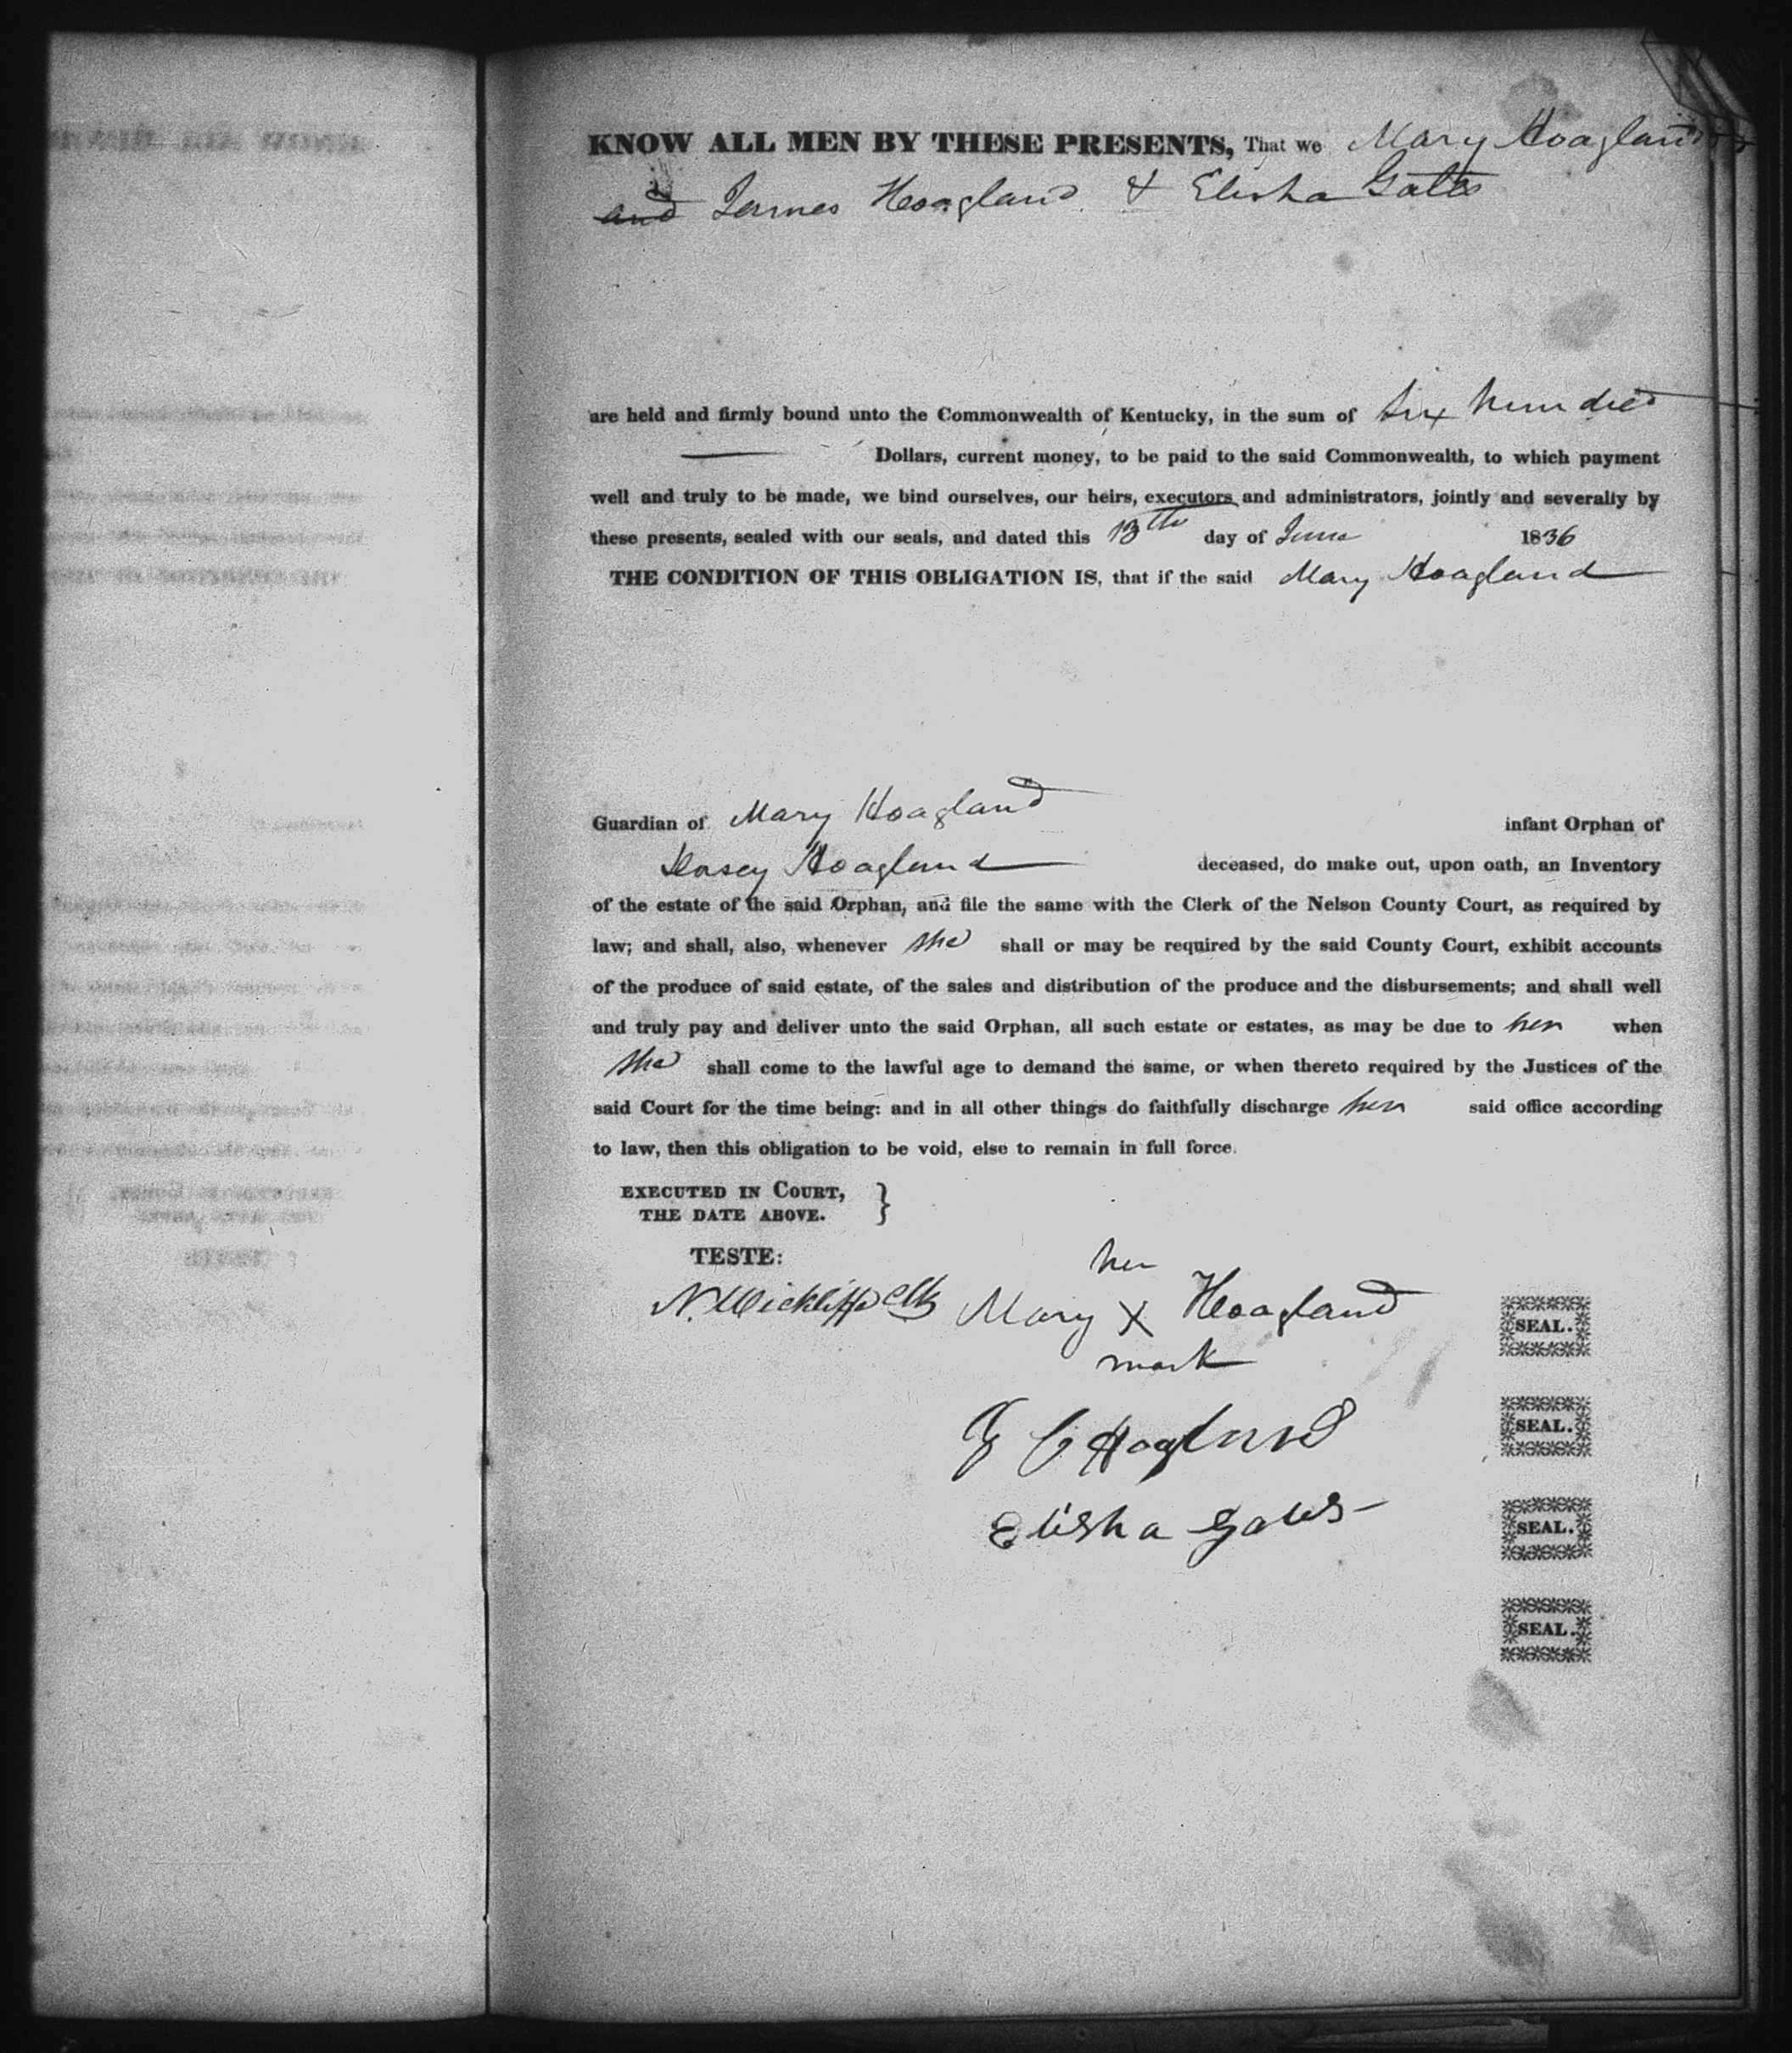 KNOW ALL MEN BY THESE PRESENTS, That we Mary Hoagland
and James Hoagland & Elisha Gates
are held and firmly bound unto the Commonwealth of Kentucky, in the sum of Six hundred
Dollars, current money, to be paid to the said Commonwealth, to which payment
well and truly to be made, we bind ourselves, our heirs, executors and administrators, jointly and severally by
these presents, sealed with our seals, and dated this 13th day of June 1836
THE CONDITION OF THIS OBLIGATION IS, that if the said Mary Hoagland
Guardian of Mary Hoagland infant Orphan of
Hoagland deceased, do make out, upon oath, an Inventory
of the estate of the said Orphan, and file the same with the Clerk of the Nelson County Court, as required by
law; and shall, also, whenever she shall or may be required by the said County Court, exhibit accounts
of the produce of said estate, of the sales and distribution of the produce and the disbursements; and shall well
and truly pay and deliver unto the said Orphan, all such estate or estates, as may be due to her when
she shall come to the lawful age to demand the same, or when thereto required by the Justices of the
said Court for the time being: and in all other things do faithfully discharge her said office according
to law, then this obligation to be void, else to remain in full force.
EXECUTED IN COURT, }
THE DATE ABOVE.
TESTE:
her
N. Wickliffe Clk Mary X Hoagland SEAL.
mark
J C Hoagland SEAL.
Elisha Gates SEAL.
SEAL.